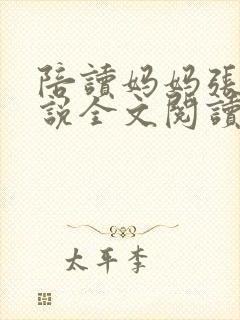 陪讀妈妈張
說全文閱讀
太平李